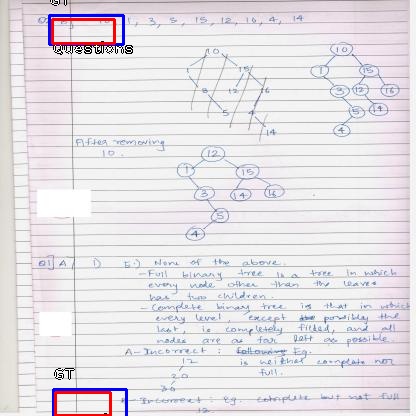 GT
Questions
10, 1, 3, 5, 15, 12, 16, 4, 14
10
1 15
3 12 16
5 4
14
10
1 15
3 12 16
5 14
4
After removing
10.
12
1 15
3 14 16
5
4
Q1] A, 1) 5.) None of the above.
- Full binary tree is a tree in which
every node other than the leaves
has two children.
- Complete binary tree is that in which
every level, except possibly the
last, is completely filled, and all
nodes are as far left as possible.
A - Incorrect : Eg.
12 is neither complete nor
20 full.
30
GT
B - Incorrect : Eg. complete but not full
12